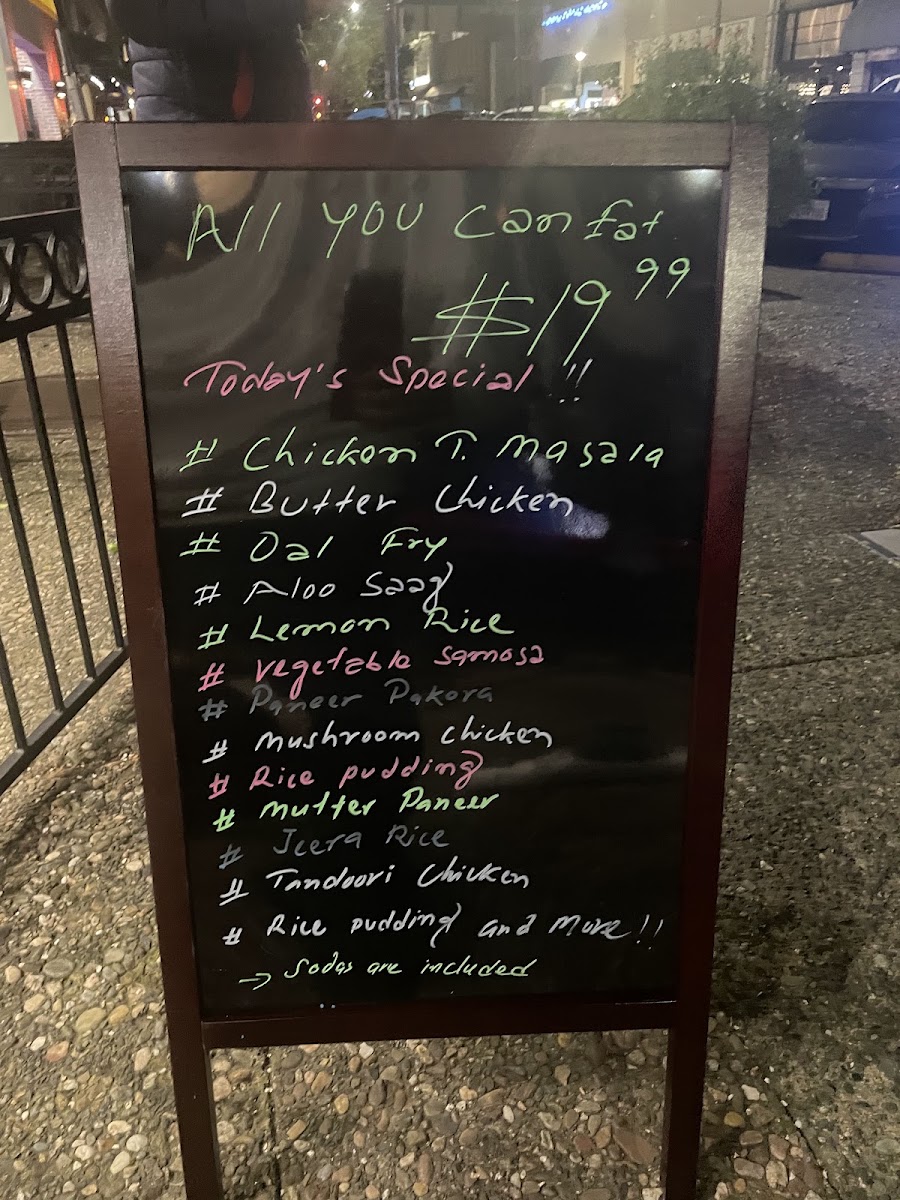 All YOU Can Eat
$19.99
Today's Special !!
# Chicken T. Masala
# Butter Chicken
# Dal Fry
# Aloo Saag
# Lemon Rice
# vegetable samosa
# Paneer Pakora
# Mushroom Chicken
# Rice pudding
# Mutter Paneer
# Jeera Rice
# Tandoori Chicken
# Rice pudding and More!!
→ Sodas are included